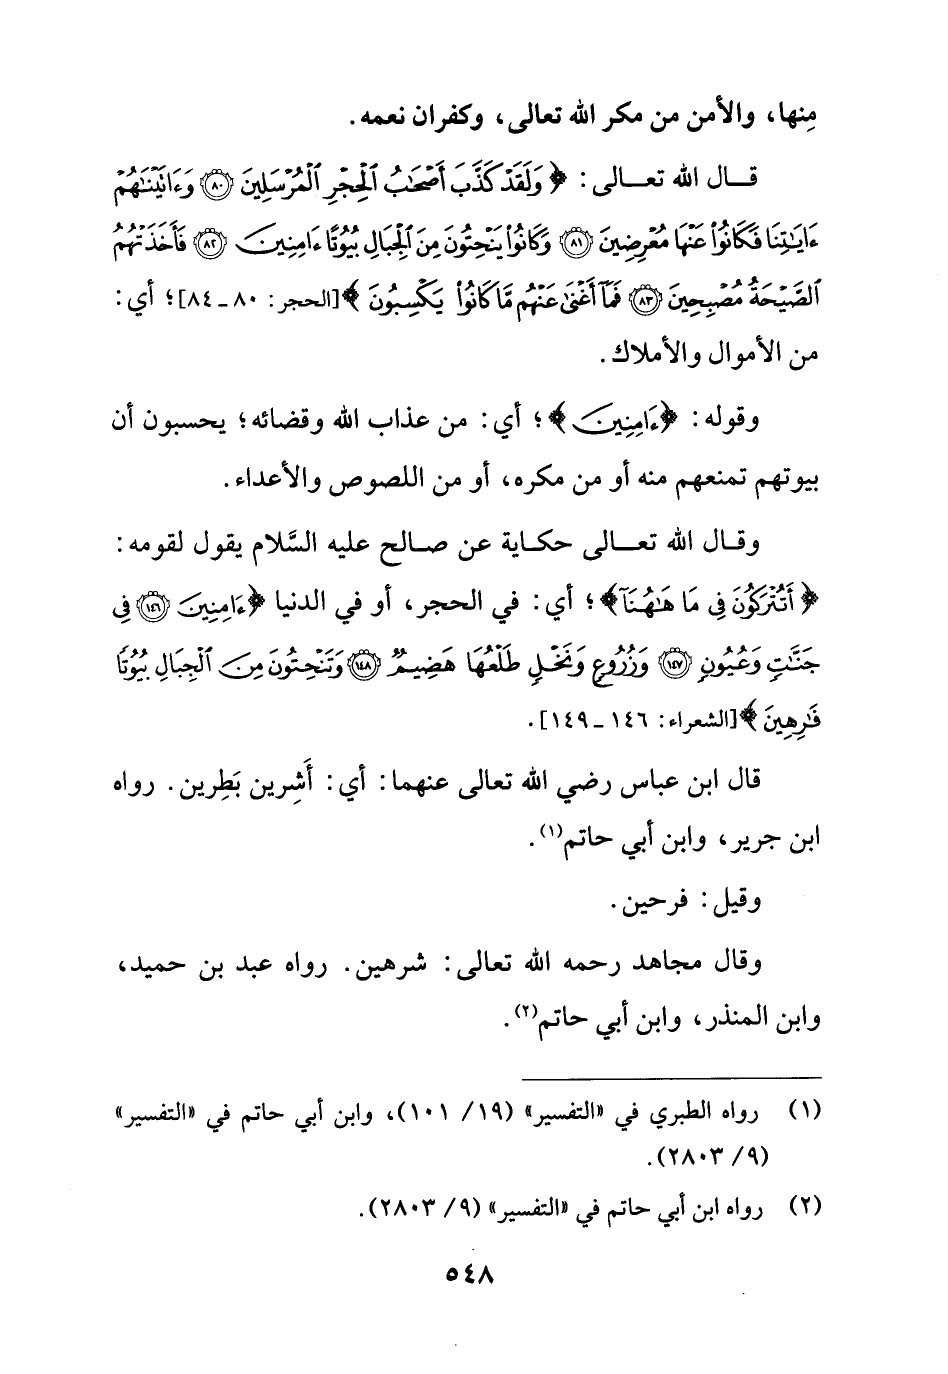 مِنها، والأمن من مكر الله تعالى، وكفران نعمه.
قـال الله تعـالى: ﴿وَلَقَدْ كَذَّبَ أَصْحَٰبُ ٱلْحِجْرِ ٱلْمُرْسَلِينَ ۝٨٠ وَءَاتَيْنَٰهُمْ
ءَايَٰتِنَا فَكَانُوا۟ عَنْهَا مُعْرِضِينَ ۝٨١ وَكَانُوا۟ يَنْحِتُونَ مِنَ ٱلْجِبَالِ بُيُوتًا ءَامِنِينَ ۝٨٢ فَأَخَذَتْهُمُ
ٱلصَّيْحَةُ مُصْبِحِينَ ۝٨٣ فَمَآ أَغْنَىٰ عَنْهُم مَّا كَانُوا۟ يَكْسِبُونَ﴾[الحجر: ٨٠ ـ ٨٤]؛ أي:
من الأموال والأملاك.
وقوله: ﴿ءَامِنِينَ﴾؛ أي: من عذاب الله وقضائه؛ يحسبون أن
بيوتهم تمنعهم منه أو من مكره، أو من اللصوص والأعداء.
وقـال الله تعـالى حكـاية عن صـالح عليه السَّلام يقول لقومه:
﴿أَتُتْرَكُونَ فِى مَا هَٰهُنَآ﴾؛ أي: في الحجر، أو في الدنيا ﴿ءَامِنِينَ ۝١٤٦ فِى
جَنَّٰتٍ وَعُيُونٍ ۝١٤٧ وَزُرُوعٍ وَنَخْلٍ طَلْعُهَا هَضِيمٌ ۝١٤٨ وَتَنْحِتُونَ مِنَ ٱلْجِبَالِ بُيُوتًا
فَٰرِهِينَ﴾[الشعراء: ١٤٦ ـ ١٤٩].
قال ابن عباس رضي الله تعالى عنهما: أي: أَشِرين بَطِرين. رواه
ابن جرير، وابن أبي حاتم(١).
وقيل: فرحين.
وقال مجاهد رحمه الله تعالى: شرهين. رواه عبد بن حميد،
وابن المنذر، وابن أبي حاتم(٢).
(١) رواه الطبري في «التفسير» (١٩/ ١٠١)، وابن أبي حاتم في «التفسير»
(٩/ ٢٨٠٣).
(٢) رواه ابن أبي حاتم في «التفسير» (٩/ ٢٨٠٣).
٥٤٨